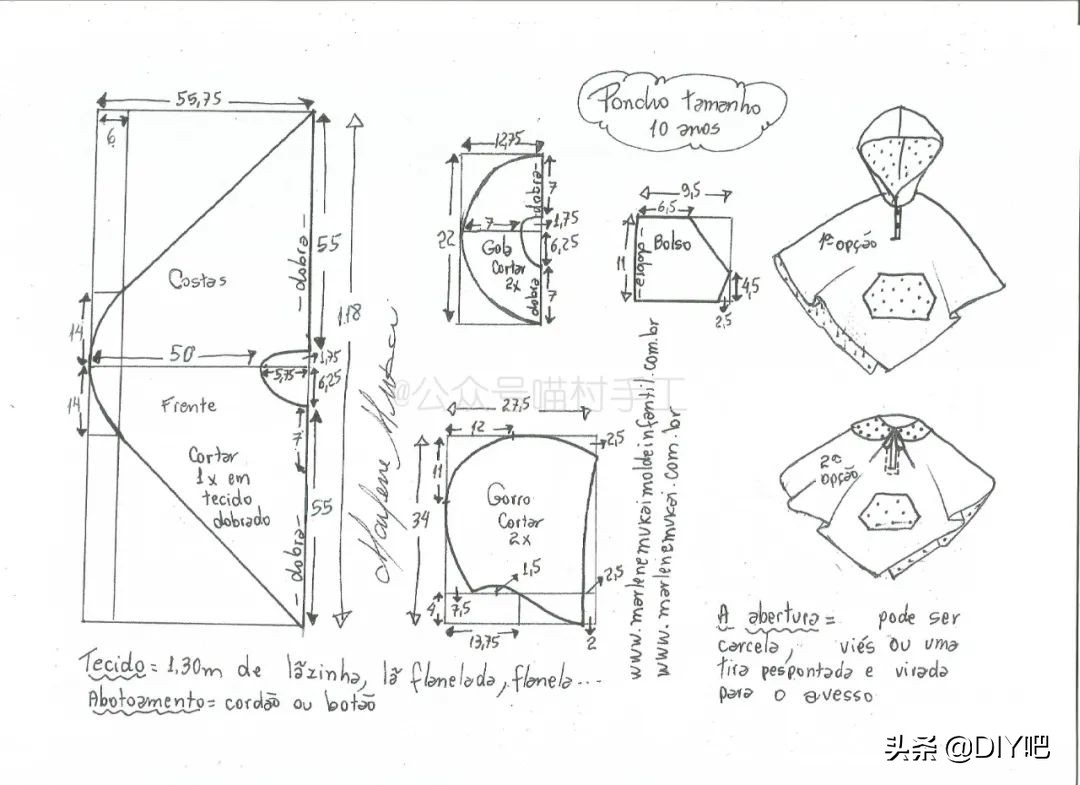 55,75
6
Costas
dobra
55
1.18
14
50
1,75
5,75
6,25
14
Frente
7
Cortar
1x em
tecido
dobrado
dobra
55
12,75
dobra
7
22
7
1,75
Gola
Cortar
2x
6,25
dobra
7
Poncho tamanho
10 anos
9,5
6,5
11
dobra
Bolso
4,5
2,5
1ª opção
2ª
opção
@公众号喵村手工
27,5
12
2,5
11
34
Gorro
Cortar
2x
1,5
2,5
4
7,5
13,75
2
Marlene Mukai
www.marlenemukaimoldeinfantil.com.br
www.marlenemukai.com.br
Tecido = 1,30m de lãzinha, lã flanelada, flanela...
Abotoamento = cordão ou botão
A abertura = pode ser
carcela, viés ou uma
tira pespontada e virada
para o avesso
头条 @DIY吧